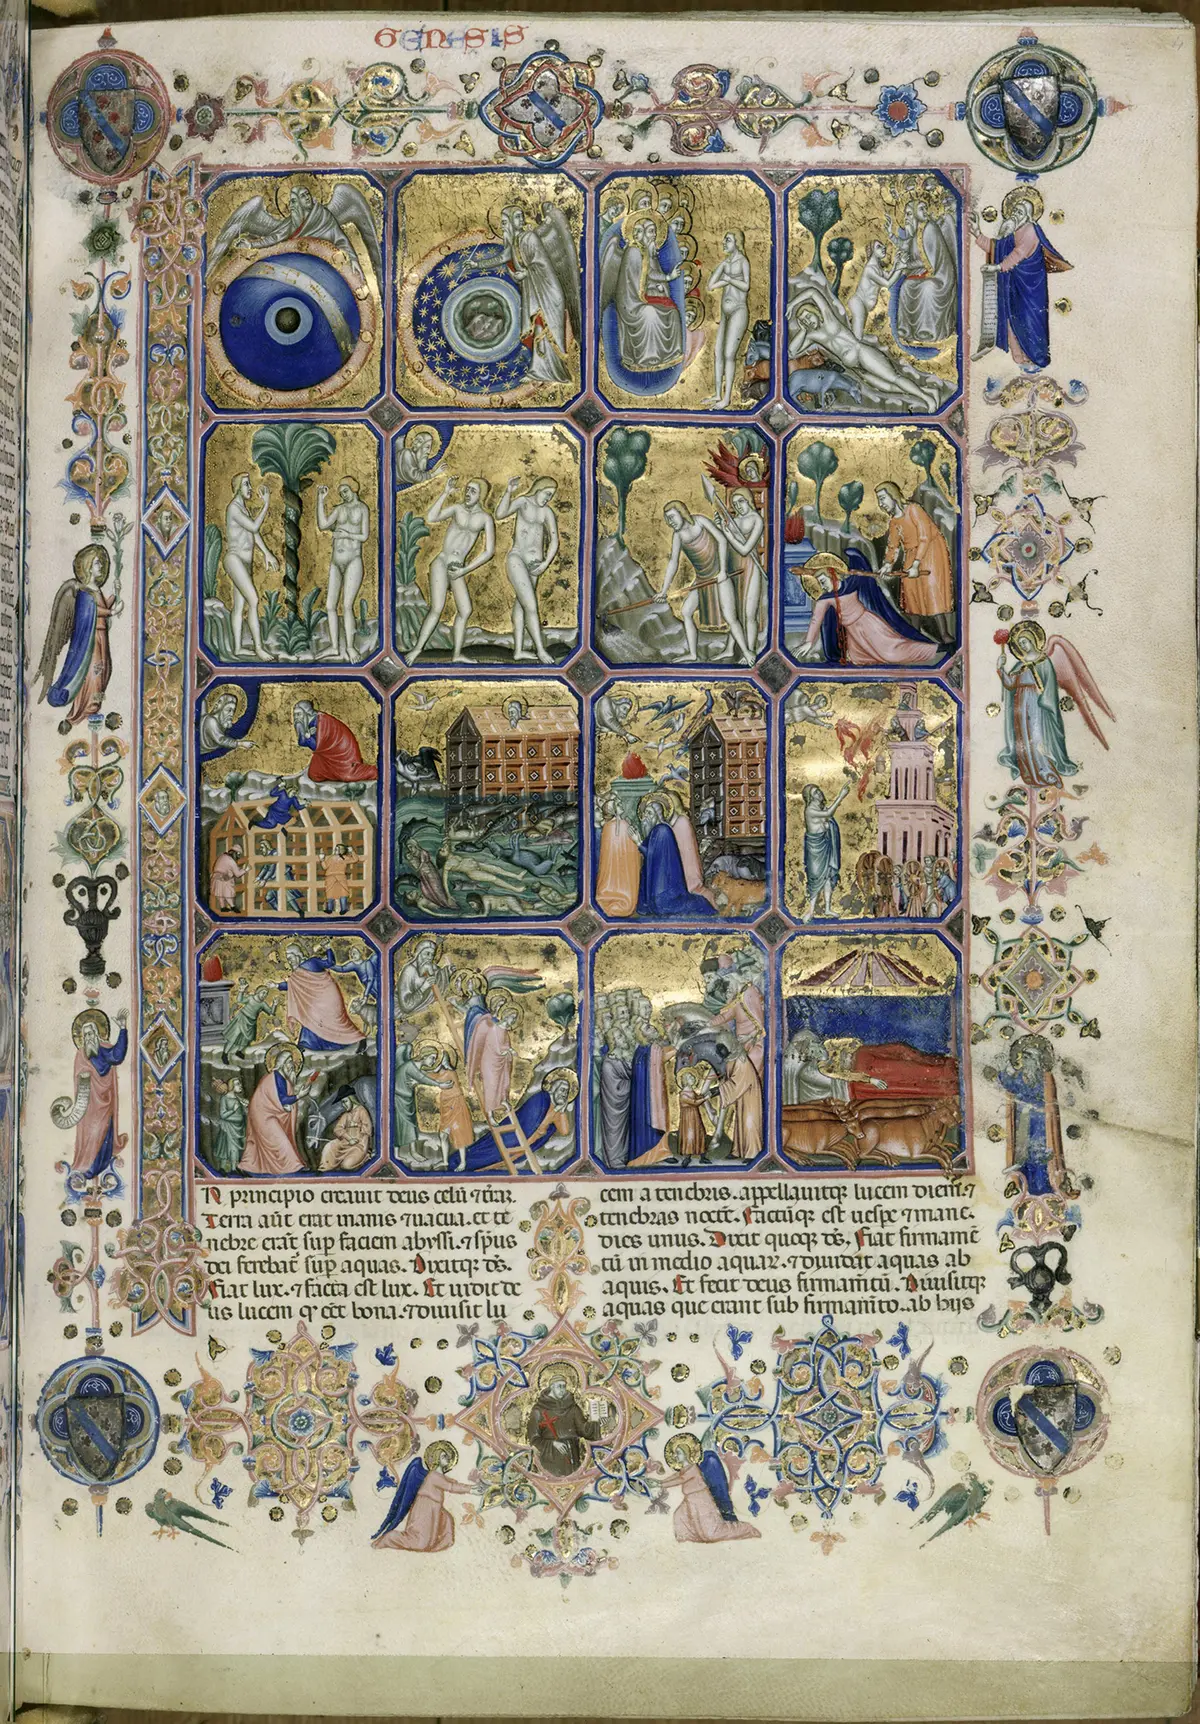 GENESIS
N principio creauit deus celū ⁊ t̄rā.
Terra aūt erat inanis ⁊ uacua. et te
nebre erāt sup faciem abyssi. ⁊ sp̄us
dei ferebat̄ sup aquas. Dixitq; d̄s.
Fiat lux. ⁊ facta est lux. Et uidit de
us lucem q̛ eēt bona. ⁊ diuisit lu
cem a tenebris. appellauitq; lucem diem. ⁊
tenebras noctē. Factūq; est uesp̄e ⁊ mane.
dies unus. Dixit quoq; d̄s. Fiat firmamē
tū in medio aquaꝝ. ⁊ diuidat aquas ab
aquis. Et fecit deus firmam̄tū. Diuisitq;
aquas que erant sub firmam̄to. ab hijs